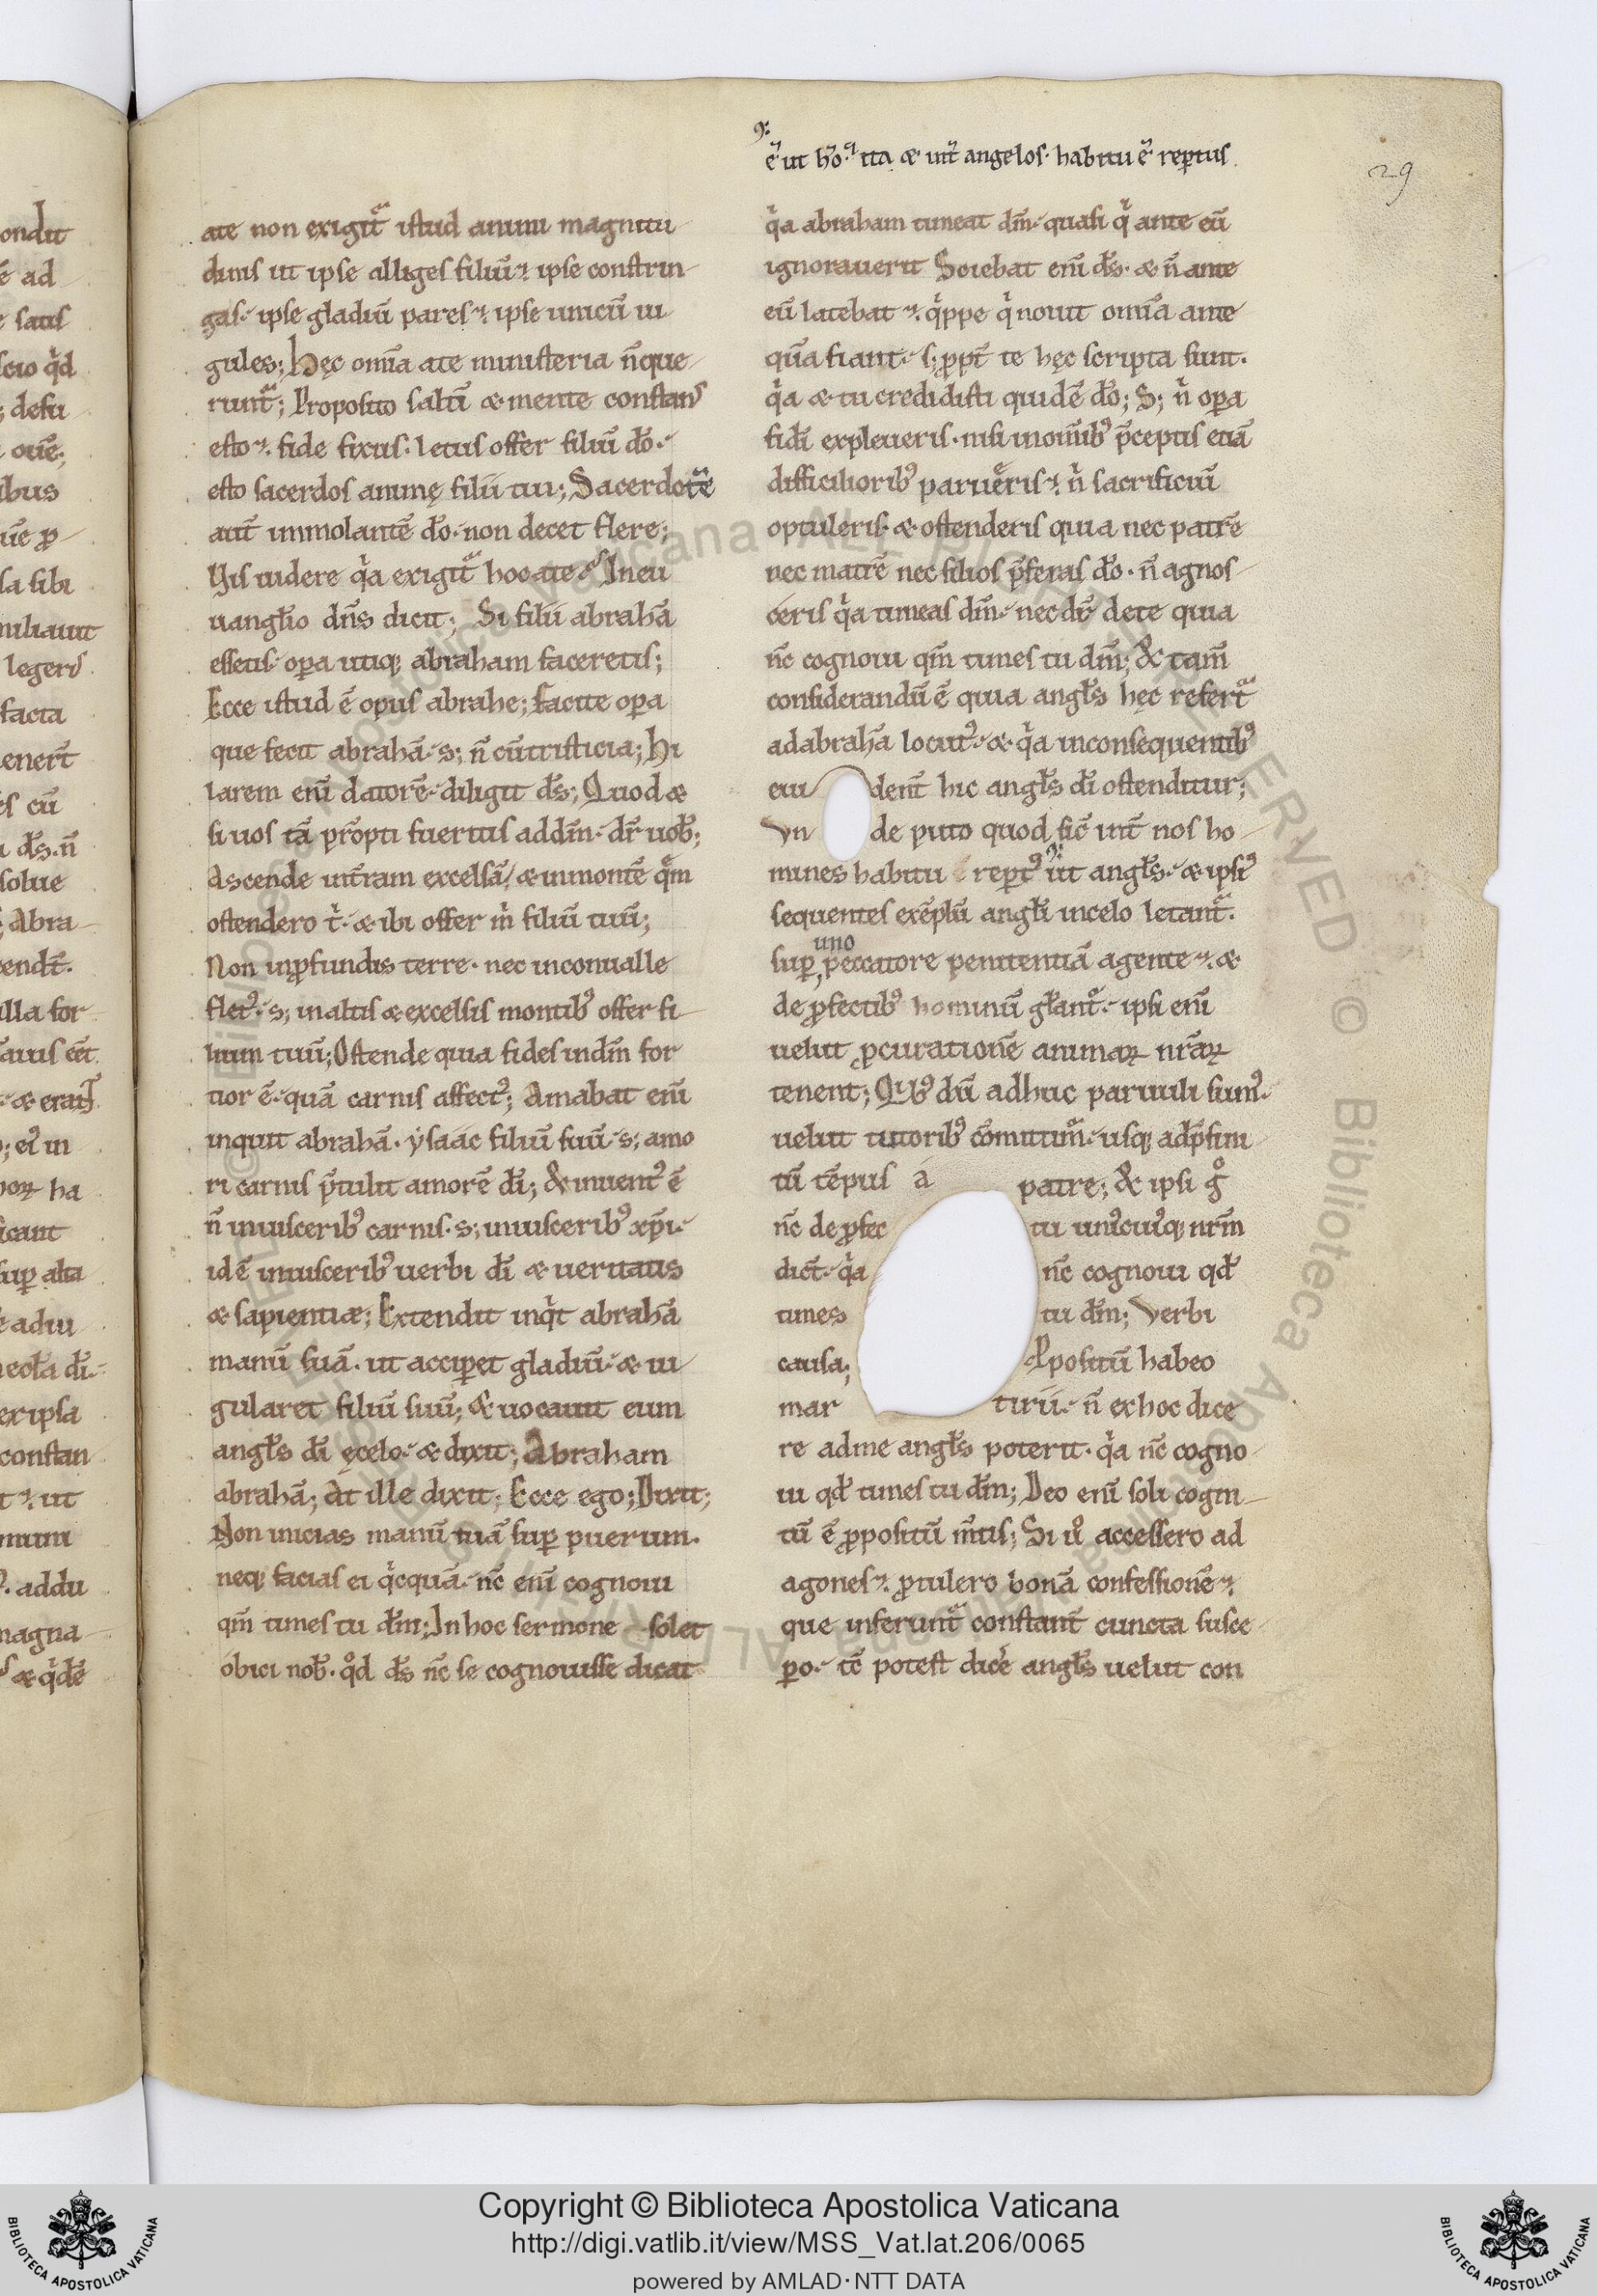 9:
ē ut hō. q̄ ita æ int̄ angelos· habitu ē reꝑtus.
29
ate non exigit᷒ istud animi magnitu
dinis ut ipse alliges filiū·ipse constrin
gas· ipse gladiū pares· ipse unicū iu
gules; hęc om̄ia ate ministeria ñque
runt᷒; Proposito saltī æ mente constans
esto· fide fixus· letus offer filiū dō·
esto sacerdos animę filii tui; Sacerdotē
aut̄ immolantē dō· non decet flere;
Vis uidere q̇a exigit᷒ hoc ate? In eu
uanglio dn̄s dicit; Si filii abrahā
essetis· oꝑa utiq; abraham faceretis;
Ecce istud ē opus abrahe; facite oꝑa
que fecit abrahā· s; n̄ cū tristicia; hi
larem eni datorē· diligit ds̄; Quod æ
si uos tā prōpti fueritis addm̄· dr̄ uob̄;
Ascende int̄ram excelsā/ æ inmontē qᵉm
ostendero t̄· æ ibi offer m̄ filiū tuū;
Non inꝓfundis terre· nec inconualle
fletꝰ· s; inaltis æ excelsis montibꝰ offer fi
lium tuū; Ostende quia fides indm̄ for
tior ē· quā carnis affectꝰ; Amabat eni
inquit abrahā· ẏsaác filiū suū· s; amo
ri carnis p̄tulit amorē dī; & inuentꝰ ē
n̄ inuisceribꝰ carnis· s; inuisceribꝰ xp̄i·
idē inuisceribꝰ uerbi dī æ ueritatis
æ sapientiæ; Extendit inq̇t abrahā
manū suā· ut acciꝑet gladiū· æ iu
gularet filiū suū; & uocauit eum
angl̄s dī ęcelo· æ dixit; Abraham
abrahā; At ille dixit; Ecce ego; Dixit;
Non inicias manū tuā suꝑ puerum·
neq; facias ei q̇cquā· nc̄ eni cognoui
qm̄ times tu dm̄; In hoc sermone solet
obici nob̄· qᵒd ds̄ nc̄ se cognouisse dicat
q̇a abraham timeat dm̄· quasi q̇ ante eū
ignorauerit Sciebat eni ds̄· æ n̄ ante
eū latebat· q̇ppe q̇ nouit om̄ia ante
quā fiant· s; ꝓpt̄ te hęc scripta sunt·
q̇a æ tu credidisti quidē dō; S; n̄ oꝑa
fidi expleueris· nisi inom̄ibꝰ p̄ceptis etiā
difficilioribꝰ parueris· n̄ sacrificiū
optuleris· æ ostenderis quia nec patrē
nec matrē nec filios p̄feras dō· n̄ agnos
ceris q̇a timeas dm̄· nec dr̄ dete quia
nc̄ cognoui qm̄ times tu dm̄; & tam̄
considerandū ē quia angl̄s hęc refert᷒
adabrahā locutꝰ· æ q̇a inconsequentibꝰ
eui dent̄ hic angl̄s dī ostenditur;
Vn de puto quod sic̄ int̄ nos ho
mines habitu reꝑtꝰ ut angl̄s· æ ipsiꝰ
sequentes exēplū angl̄i incelo letant᷒·
suꝑ uno peccatore penitentiā agente· æ
de ꝓfectibꝰ hominū gl̄ant᷒· ipsi eni
uelut ꝓcurationē animaꝝ nr̄aꝝ
tenent; Qibꝰ dū adhuc paruuli sumꝰ·
uelut tutoribꝰ cōmittim᷒· usq; adp̄fini
tū tēpus a patre; & ipsi gᵒ
nc̄ de ꝓfec tu uniꝰcuiꝰq; nrm̄
dict̄· q̇a nc̄ cognoui qd̄
times tu dm̄; Verbi
causa; Ꝓpositū habeo
mar tirii· n̄ exhoc dice
re adme angl̄s poterit· q̇a nc̄ cogno
ui qd̄ times tu dm̄; Deo eni soli cogni
tū ē ꝓpositū m̄tis; Si uᵒ accessero ad
agones· ꝓtulero bonā confessionē·
que inferunt᷒ constant̄ cuncta susce
ꝑo· tc̄ potest dicē angl̄s uelut con
Copyright © Biblioteca Apostolica Vaticana
http://digi.vatlib.it/view/MSS_Vat.lat.206/0065
powered by AMLAD·NTT DATA